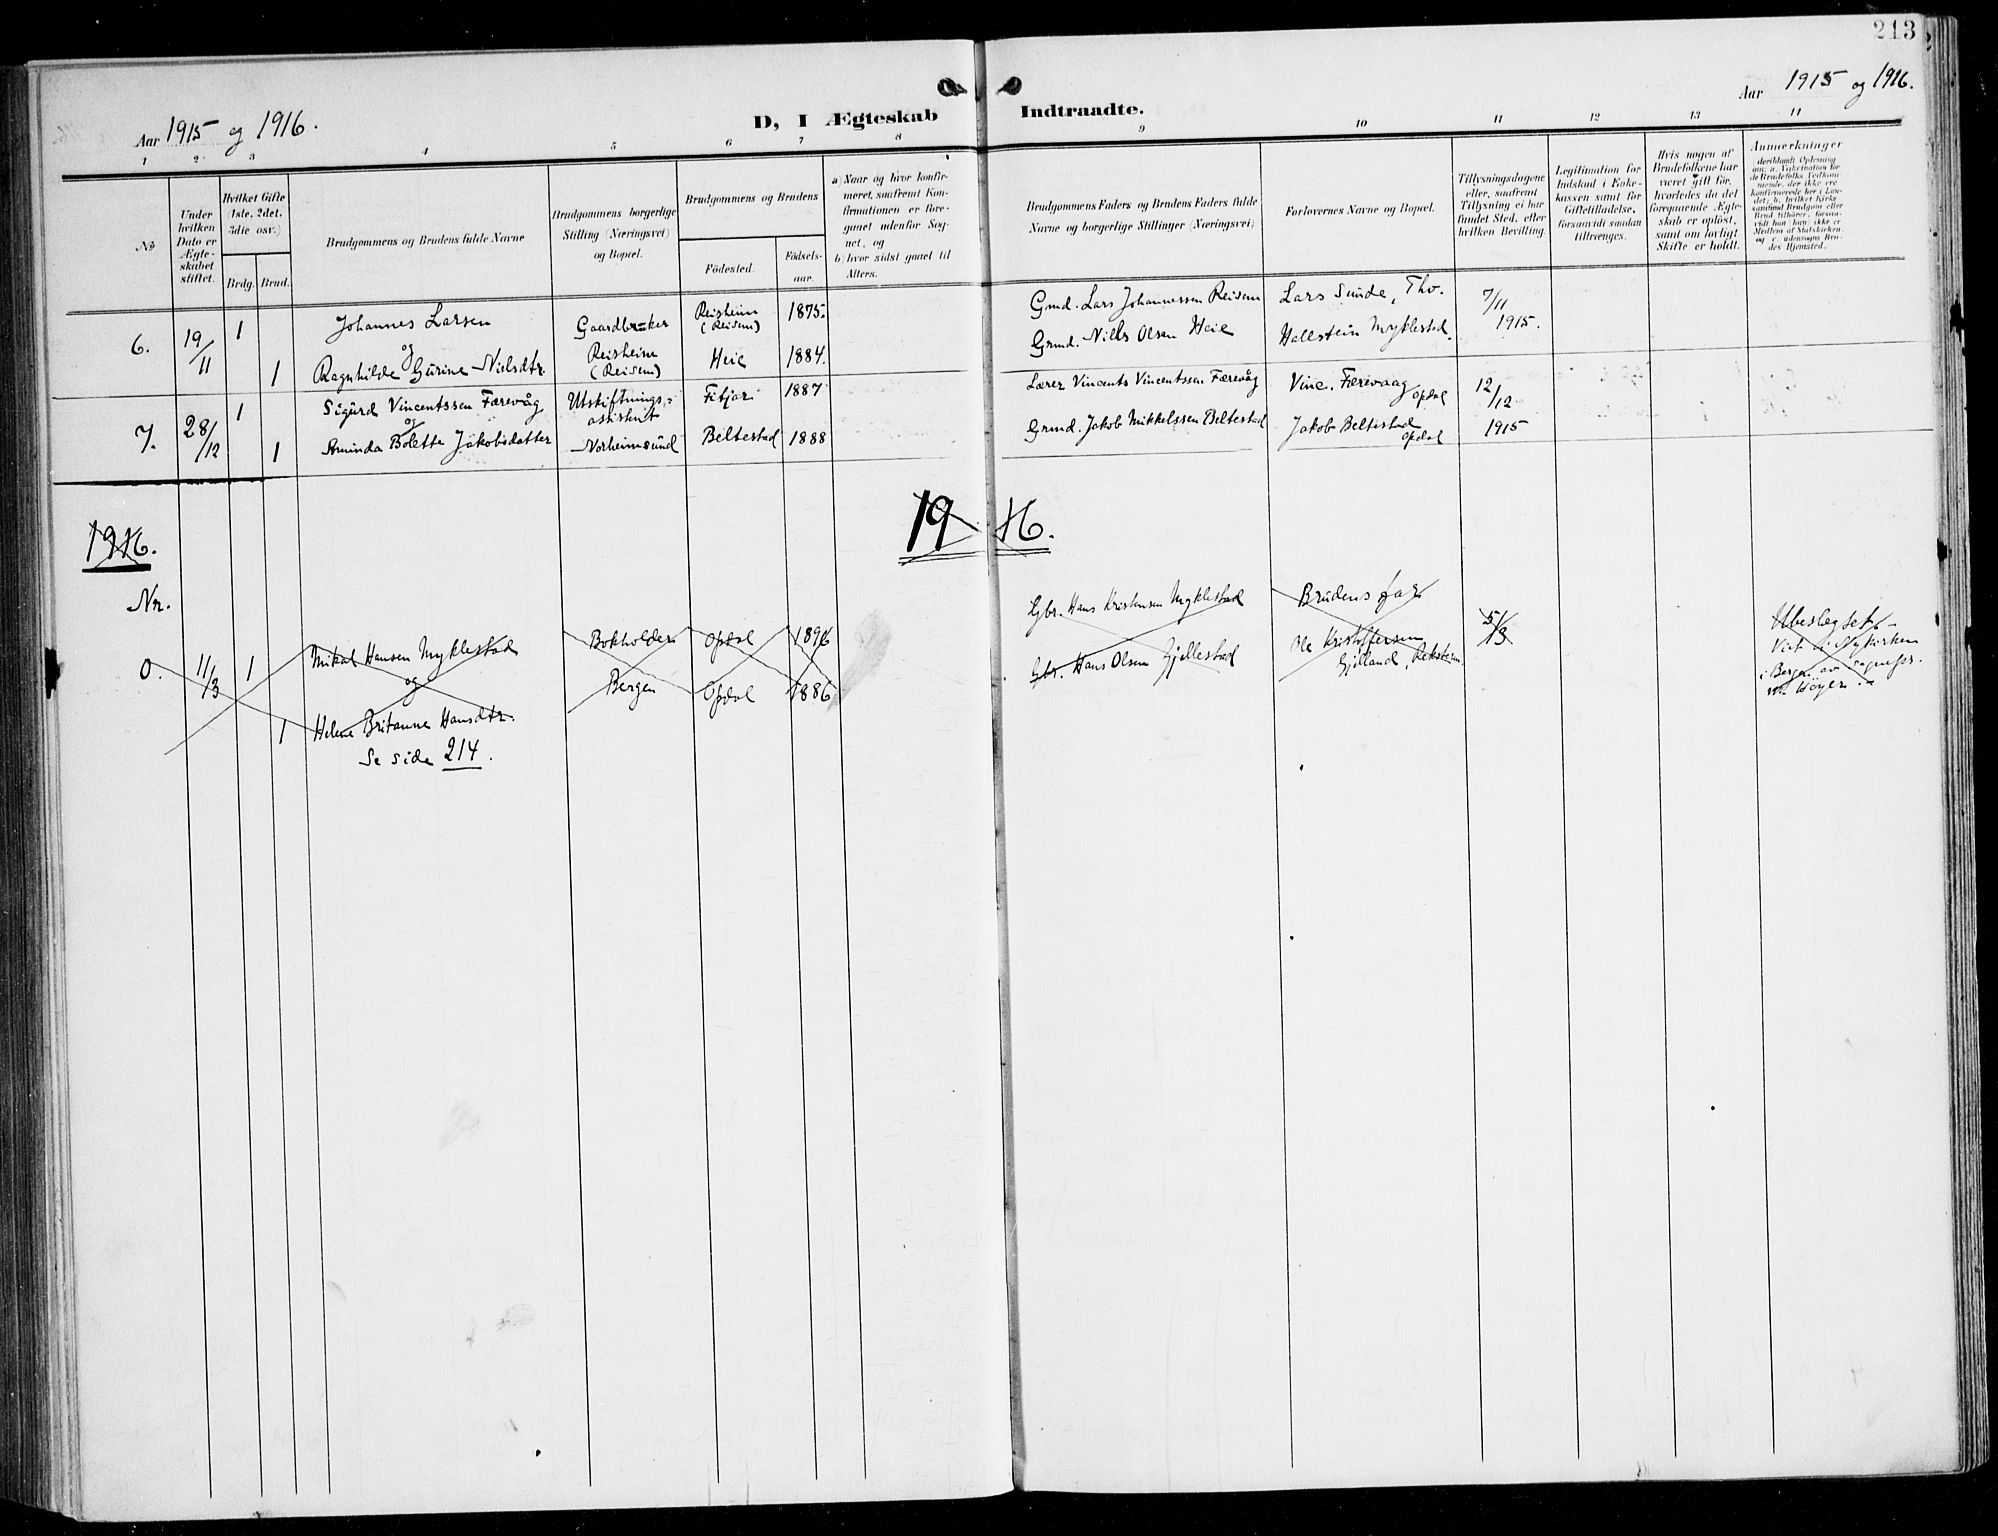 213
Aar 1915 og 1916.
D, I Ægteskab Indtraadte.
Aar 1915 og 1916.
1 2 3 4 5 6 7 8 9 10 11 12 13 14
No
Under hvilken Dato er Ægteskabet stiftet.
Hvilket Gifte (1ste, 2det, 3die osv.)
Brdg. Brud.
Brudgommens og Brudens fulde Navne
Brudgommens borgerlige Stilling (Næringsvei) og Bopæl.
Brudgommens og Brudens
Födested.
Födselsaar.
a) Naar og hvor konfirmeret, saafremt Konfirmationen er foregaaet udenfor Sognet, og
b) hvor sidst gaaet til Alters.
Brudgommens Faders og Brudens Faders fulde Navne og borgerlige Stillinger (Næringsvei)
Forlovernes Navne og Bopæl.
Tillysningsdagene eller, saafremt Tillysning ei har fundet Sted, efter hvilken Bevilling.
Legitimation for Indskud i Enkekassen samt for Giftetilladelse, forsaavidt saadan tiltrænges.
Hvis nogen af Brudefolkene har været gift för, hvorledes da det foregaaende Ægteskab er oplöst, samt om lovligt Skifte er holdt.
Anmerkninger
6. 19/11 1 Johannes Larsen Gaardbruker Reisheim (Reisem) 1875. Gmd. Lars Johannessen Reisem Lars Sunde, Thv. 7/11
og
1 Ragnhilde Gurine Nielsdtr. Reisheim (Reisem) Heie 1884. Grmd. Nills Olsen Heie Hallstein Myklestad. 1915.
7. 28/12 1 Sigurd Vincentssen Færevåg Utskiftnings= assistent Fitjar 1887 Lærer Vincents Vincentssen Færevåg Vinc. Færevaag Opdal 12/12
og
1 Aminda Bolette Jakobsdatter Norheimsund Beltestad 1888 Grmd. Jakob Mikkelssen Beltestad Jakob Beltestad Opdal 1915
1916. 1916.
Nr.
0. 11/3 1 Mikal Hansen Myklestad Bokholder Opdal Gbr. Hans Kristensen Myklestad Brudens far 5/3 Ubeslegtet.
og
1 Helene Britanne Hansdtr. Bergen Opdal 1886 Gbr. Hans Olsen Gjellestad Ole Kristoffersen Gjelland, Reksteren Viet i Nykirken i Bergen av
Se side 214.